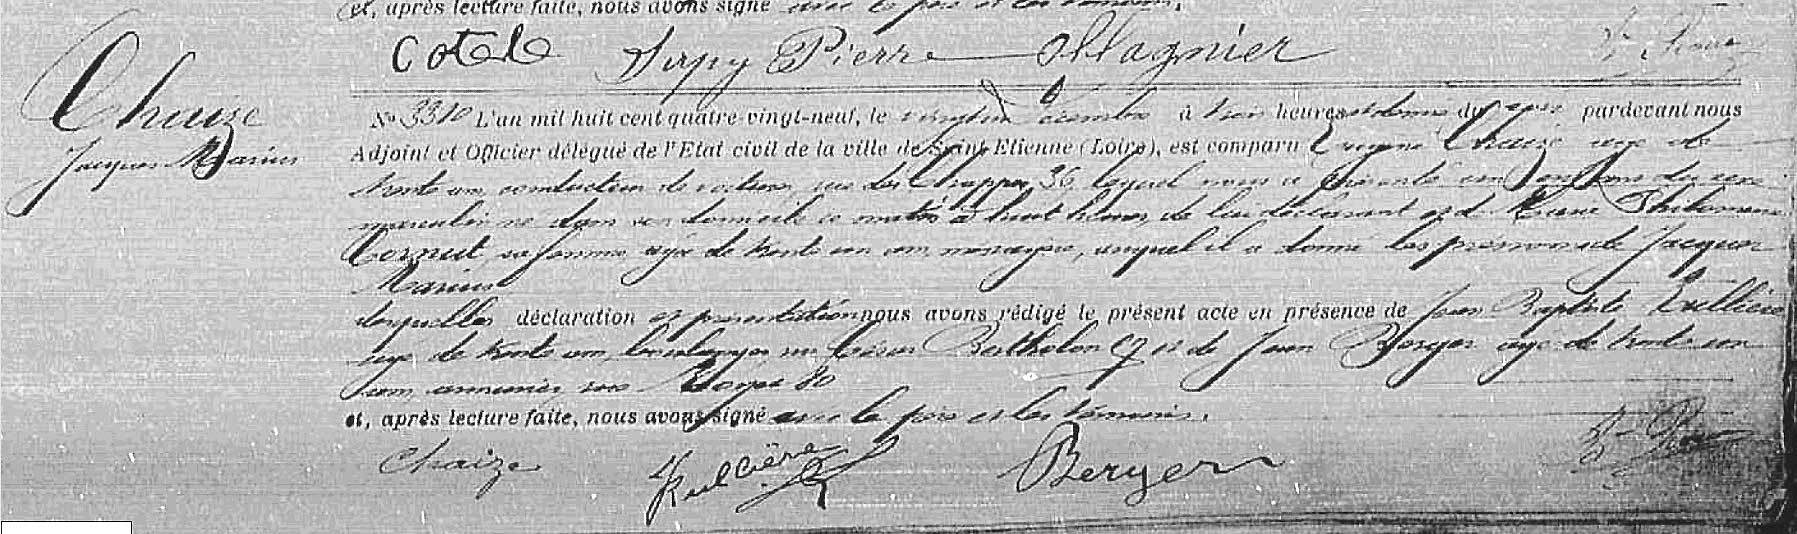 et, après lecture faite, nous avons signé avec le père et les témoins.
Cotel Pierre Magnier
Chaize
Jacques Marius
No 3310 L'an mil huit cent quatre-vingt-neuf, le décembre à trois heures du soir pardevant nous
Adjoint et Officier délégué de l'Etat civil de la ville de Saint Etienne (Loire), est comparu Chaize âgé de
trente ans, conducteur de voitures, rue des Frappes 36, lequel nous a présenté un enfant du sexe
masculin né dans son domicile ce matin à huit heures, de lui déclarant et de Marie Philomène
Cornut, sa femme âgée de trente un ans, ménagère, auquel il a donné les prénoms de Jacques
Marius
desquelles déclaration et présentation nous avons rédigé le présent acte en présence de Jean Baptiste
âgé de trente ans, boulanger rue César Bertholon 27 et de Jean Berger âgé de trente un
ans, armurier, rue 80
et, après lecture faite, nous avons signé avec le père et les témoins.
Chaize Berger